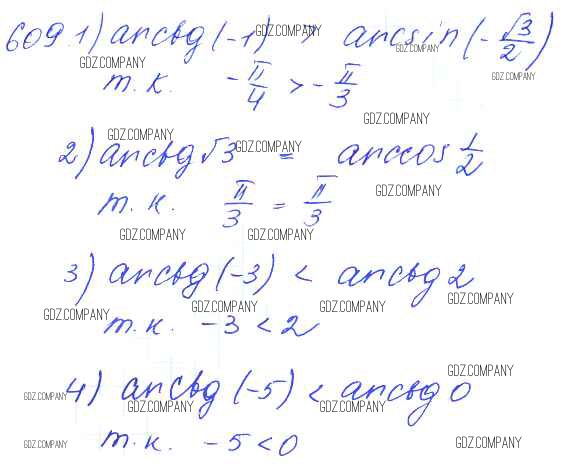 609. 1) arctg (-1) > arcsin (-√3/2)
GDZ.COMPANY GDZ.COMPANY GDZ.COMPANY GDZ.COMPANY
т.к. -π/4 > -π/3
GDZ.COMPANY GDZ.COMPANY
2) arctg √3 = arccos 1/2
GDZ.COMPANY GDZ.COMPANY
т.к. π/3 = π/3
GDZ.COMPANY GDZ.COMPANY
3) arctg (-3) < arctg 2
GDZ.COMPANY GDZ.COMPANY GDZ.COMPANY GDZ.COMPANY
т.к. -3 < 2
GDZ.COMPANY
4) arctg (-5) < arctg 0
GDZ.COMPANY GDZ.COMPANY GDZ.COMPANY
т.к. -5 < 0
GDZ.COMPANY GDZ.COMPANY